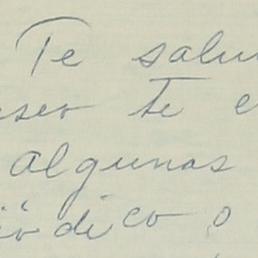 Te salu
seo te e
algunas
iódico o